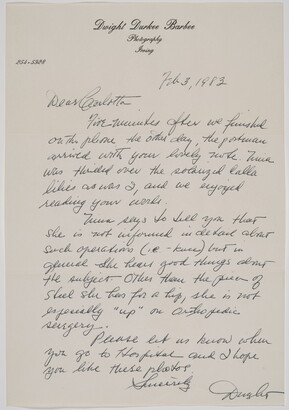 Dwight Durkee Barbee
Photography
Irving
255-5820
Feb 3, 1983
Dear Carlotta
Five minutes after we finished
on the phone the other day, the postman
arrived with your lovely note. Nana
was thrilled over the solarized calla
lilies as was I, and we enjoyed
reading your words.
Nana says to tell you that
she is not informed in detail about
such operations (i.e. - knee) but in
general she hears good things about
the subject. Other than the piece of
steel she has for a hip, she is not
especially "up" on orthopedic
surgery.
Please let us know when
you go to Hospital and I hope
you like these photos.
Sincerely
Dwight